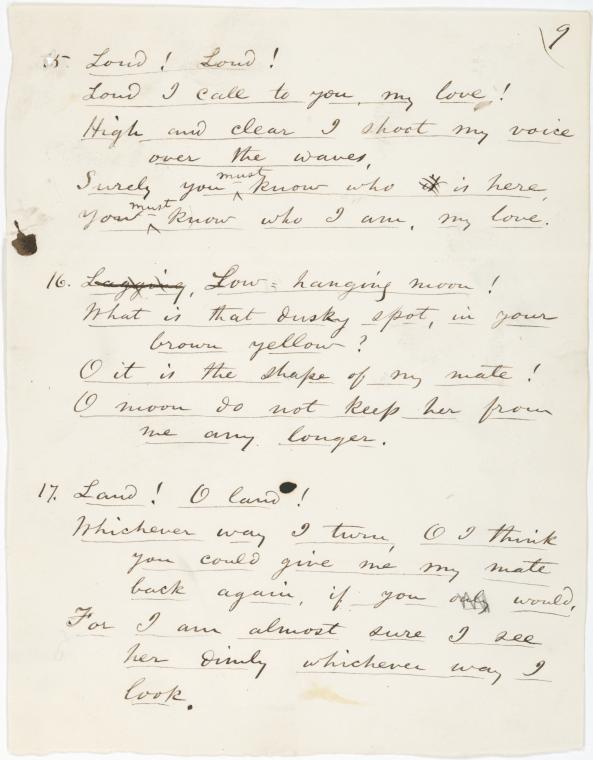 9
15. Loud! Loud!
Loud I call to you, my love!
High and clear I shoot my voice
over the waves,
Surely you must know who is here,
You must know who I am, my love.
16. Lagging, Low-hanging moon!
What is that dusky spot, in your
brown yellow?
O it is the shape of my mate!
O moon do not keep her from
me any longer.
17. Land! O land!
Whichever way I turn, O I think
you could give me my mate
back again, if you only would,
For I am almost sure I see
her dimly whichever way I
look.